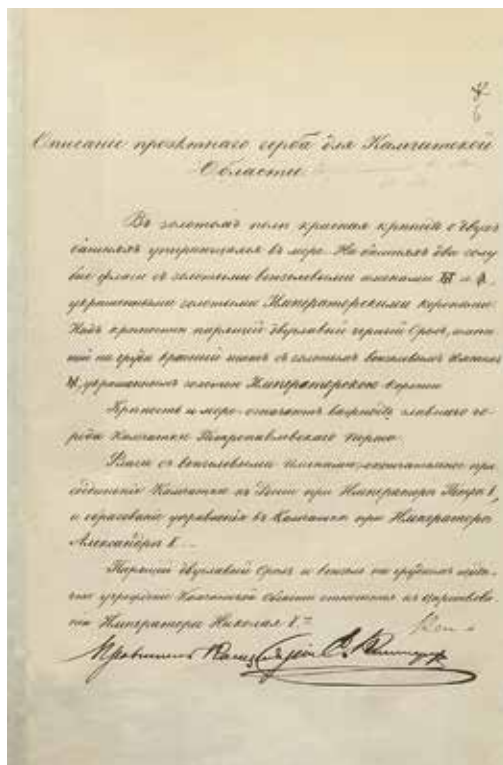 6
Описание проэктнаго герба для Камчатской
Области.
Въ золотомъ поли красная крѣпость о двухъ
башняхъ упирающаяся въ море. На башняхъ два голу-
бые флага съ золотыми вензелевыми именами и
украшенными золотыми Императорскими коронами.
Надъ крѣпостью парящій двуглавый черный Орелъ, имѣю-
щій на груди красный щитъ съ золотымъ вензелевымъ именемъ
украшеннымъ золотою Императорскою короною
Крѣпость и море означаютъ главнаго го-
рода Камчатки Петропавловскаго порта.
Флаги съ вензелевыми именами окончательное при-
соединеніе Камчатки къ при Императорѣ Петрѣ I,
и образованіе управленія въ Камчаткѣ при Императорѣ
Александрѣ I.
Парящій двуглавый Орелъ и вензель на грудномъ
учрежденіе Камчатской Области относятся къ царствова-
нію Императора Николая I.